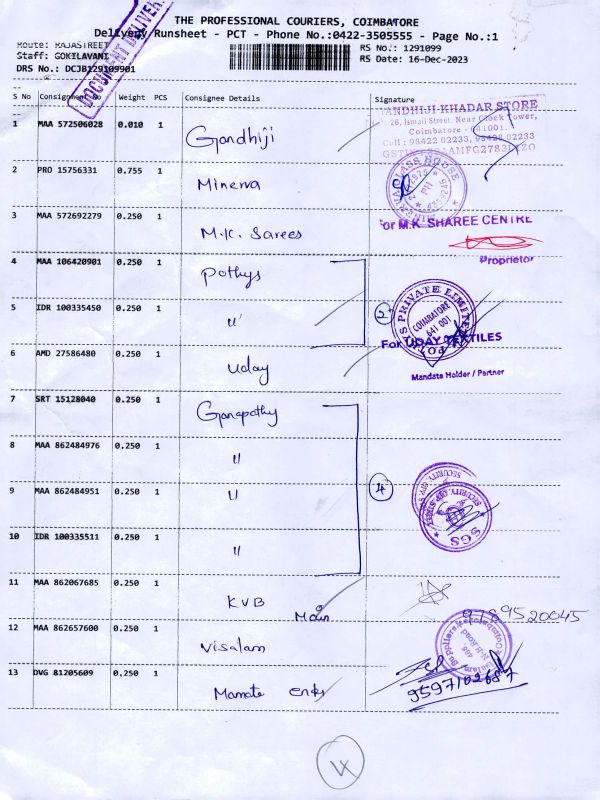 THE PROFESSIONAL COURIERS, COIMBATORE
Delivery Runsheet - PCT - Phone No.:0422-3505555 - Page No.:1
Route: RAJASTREET RS No.: 1291099
Staff: GOKILAVANI RS Date: 16-Dec-2023
DRS No.: DCJB129109901
DOCUMENT DELIVER
S No Consignment No Weight PCS Consignee Details Signature
1 MAA 572506028 0.010 1 Gandhiji
ANDHIJI KHADAR STORE
26, Ismail Street, Near Clock Tower,
Coimbatore - 641001.
Cell : 98422 02233, 98428 02233
2 PRO 15756331 0.755 1 Minerva
GLASS HOUSE
PH
3 MAA 572692279 0.250 1 M.K. Sarees
For M.K. SHAREE CENTRE
Proprietor
4 MAA 106420901 0.250 1 Pothys
5 IDR 100335450 0.250 1 "
2
PRIVATE LIMITED
COIMBATORE
641 001
6 AMD 27586480 0.250 1 Uday
For UDAY TEXTILES
Mandate Holder / Partner
7 SRT 15128040 0.250 1 Ganapathy
8 MAA 862484976 0.250 1 "
9 MAA 862484951 0.250 1 "
4
SECURITY
SGS
10 IDR 100335511 0.250 1 "
11 MAA 862067685 0.250 1 KVB Main
9789520045
12 MAA 862657600 0.250 1 Visalam
N.H.Road
13 DVG 81205609 0.250 1 Mamate Enks
9597102687
4